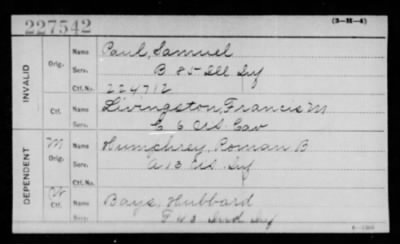 227542
(3-H-4)
INVALID
Orig.
Name Paul, Samuel
Serv. B 85 Ill Inf
Ctf. No. 224712
Ctf.
Name Livingston, Francis M
Serv. E 6 Cav
DEPENDENT
M
Orig.
Name Humphrey, Roman B
Serv. 13 Inf
Ctf. No.
W
Ctf.
Name Bays, Hubbard
Serv. F 43 Ind Inf